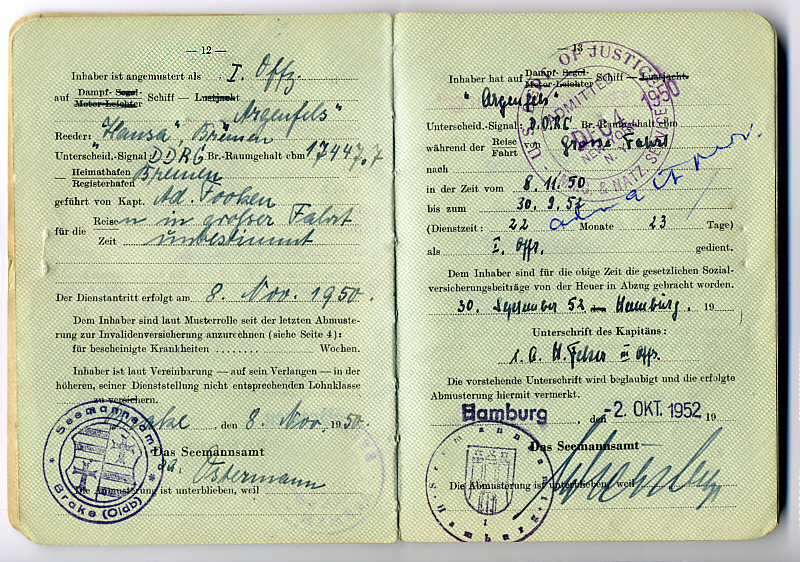 — 12 —
Inhaber ist angemustert als I. Offz.
auf Dampf- Segel- Motor-Leichter Schiff — Lustjacht
„Argenfels"
Reeder: „Hansa", Bremen
Unterscheid.-Signal DDRG Br.-Raumgehalt cbm 17447,7
— Heimathafen Registerhafen Bremen
geführt von Kapt. Ad. Fooken
für die Reisen in großer Fahrt
Zeit unbestimmt
Der Dienstantritt erfolgt am 8. Nov. 1950.
Dem Inhaber sind laut Musterrolle seit der letzten Abmuste-
rung zur Invalidenversicherung anzurechnen (siehe Seite 4):
für bescheinigte Krankheiten ........ Wochen.
Inhaber ist laut Vereinbarung — auf sein Verlangen — in der
höheren, seiner Dienststellung nicht entsprechenden Lohnklasse
zu versichern.
Brake, den 8. Nov. 1950.
Das Seemannsamt
Ostermann
Die Abmusterung ist unterblieben, weil
Seemannsamt
Brake (Oldb)
— 13 —
Inhaber hat auf Dampf- Segel- Motor-Leichter Schiff — Lustjacht
"Argenfels"
Unterscheid.-Signal: D.D.R.G Br.-Raumgehalt cbm
während der Reise Fahrt von Große Fahrt
nach
in der Zeit vom 8.11.50
bis zum 30.9.52
(Dienstzeit: 22 Monate 23 Tage)
als I. Offz. gedient.
Dem Inhaber sind für die obige Zeit die gesetzlichen Sozial-
versicherungsbeiträge von der Heuer in Abzug gebracht worden.
30. September 52 Hamburg, 19
Unterschrift des Kapitäns:
III Offz.
Die vorstehende Unterschrift wird beglaubigt und die erfolgte
Abmusterung hiermit vermerkt.
Hamburg, den -2. OKT. 1952 19
Das Seemannsamt
Die Abmusterung ist unterblieben, weil
Seemannsamt
Hamburg
U.S. DEPT. OF JUSTICE
ADMITTED
DEC 4 1950
NEW YORK, N.Y.
IMMIG. & NATZ. SERVICE